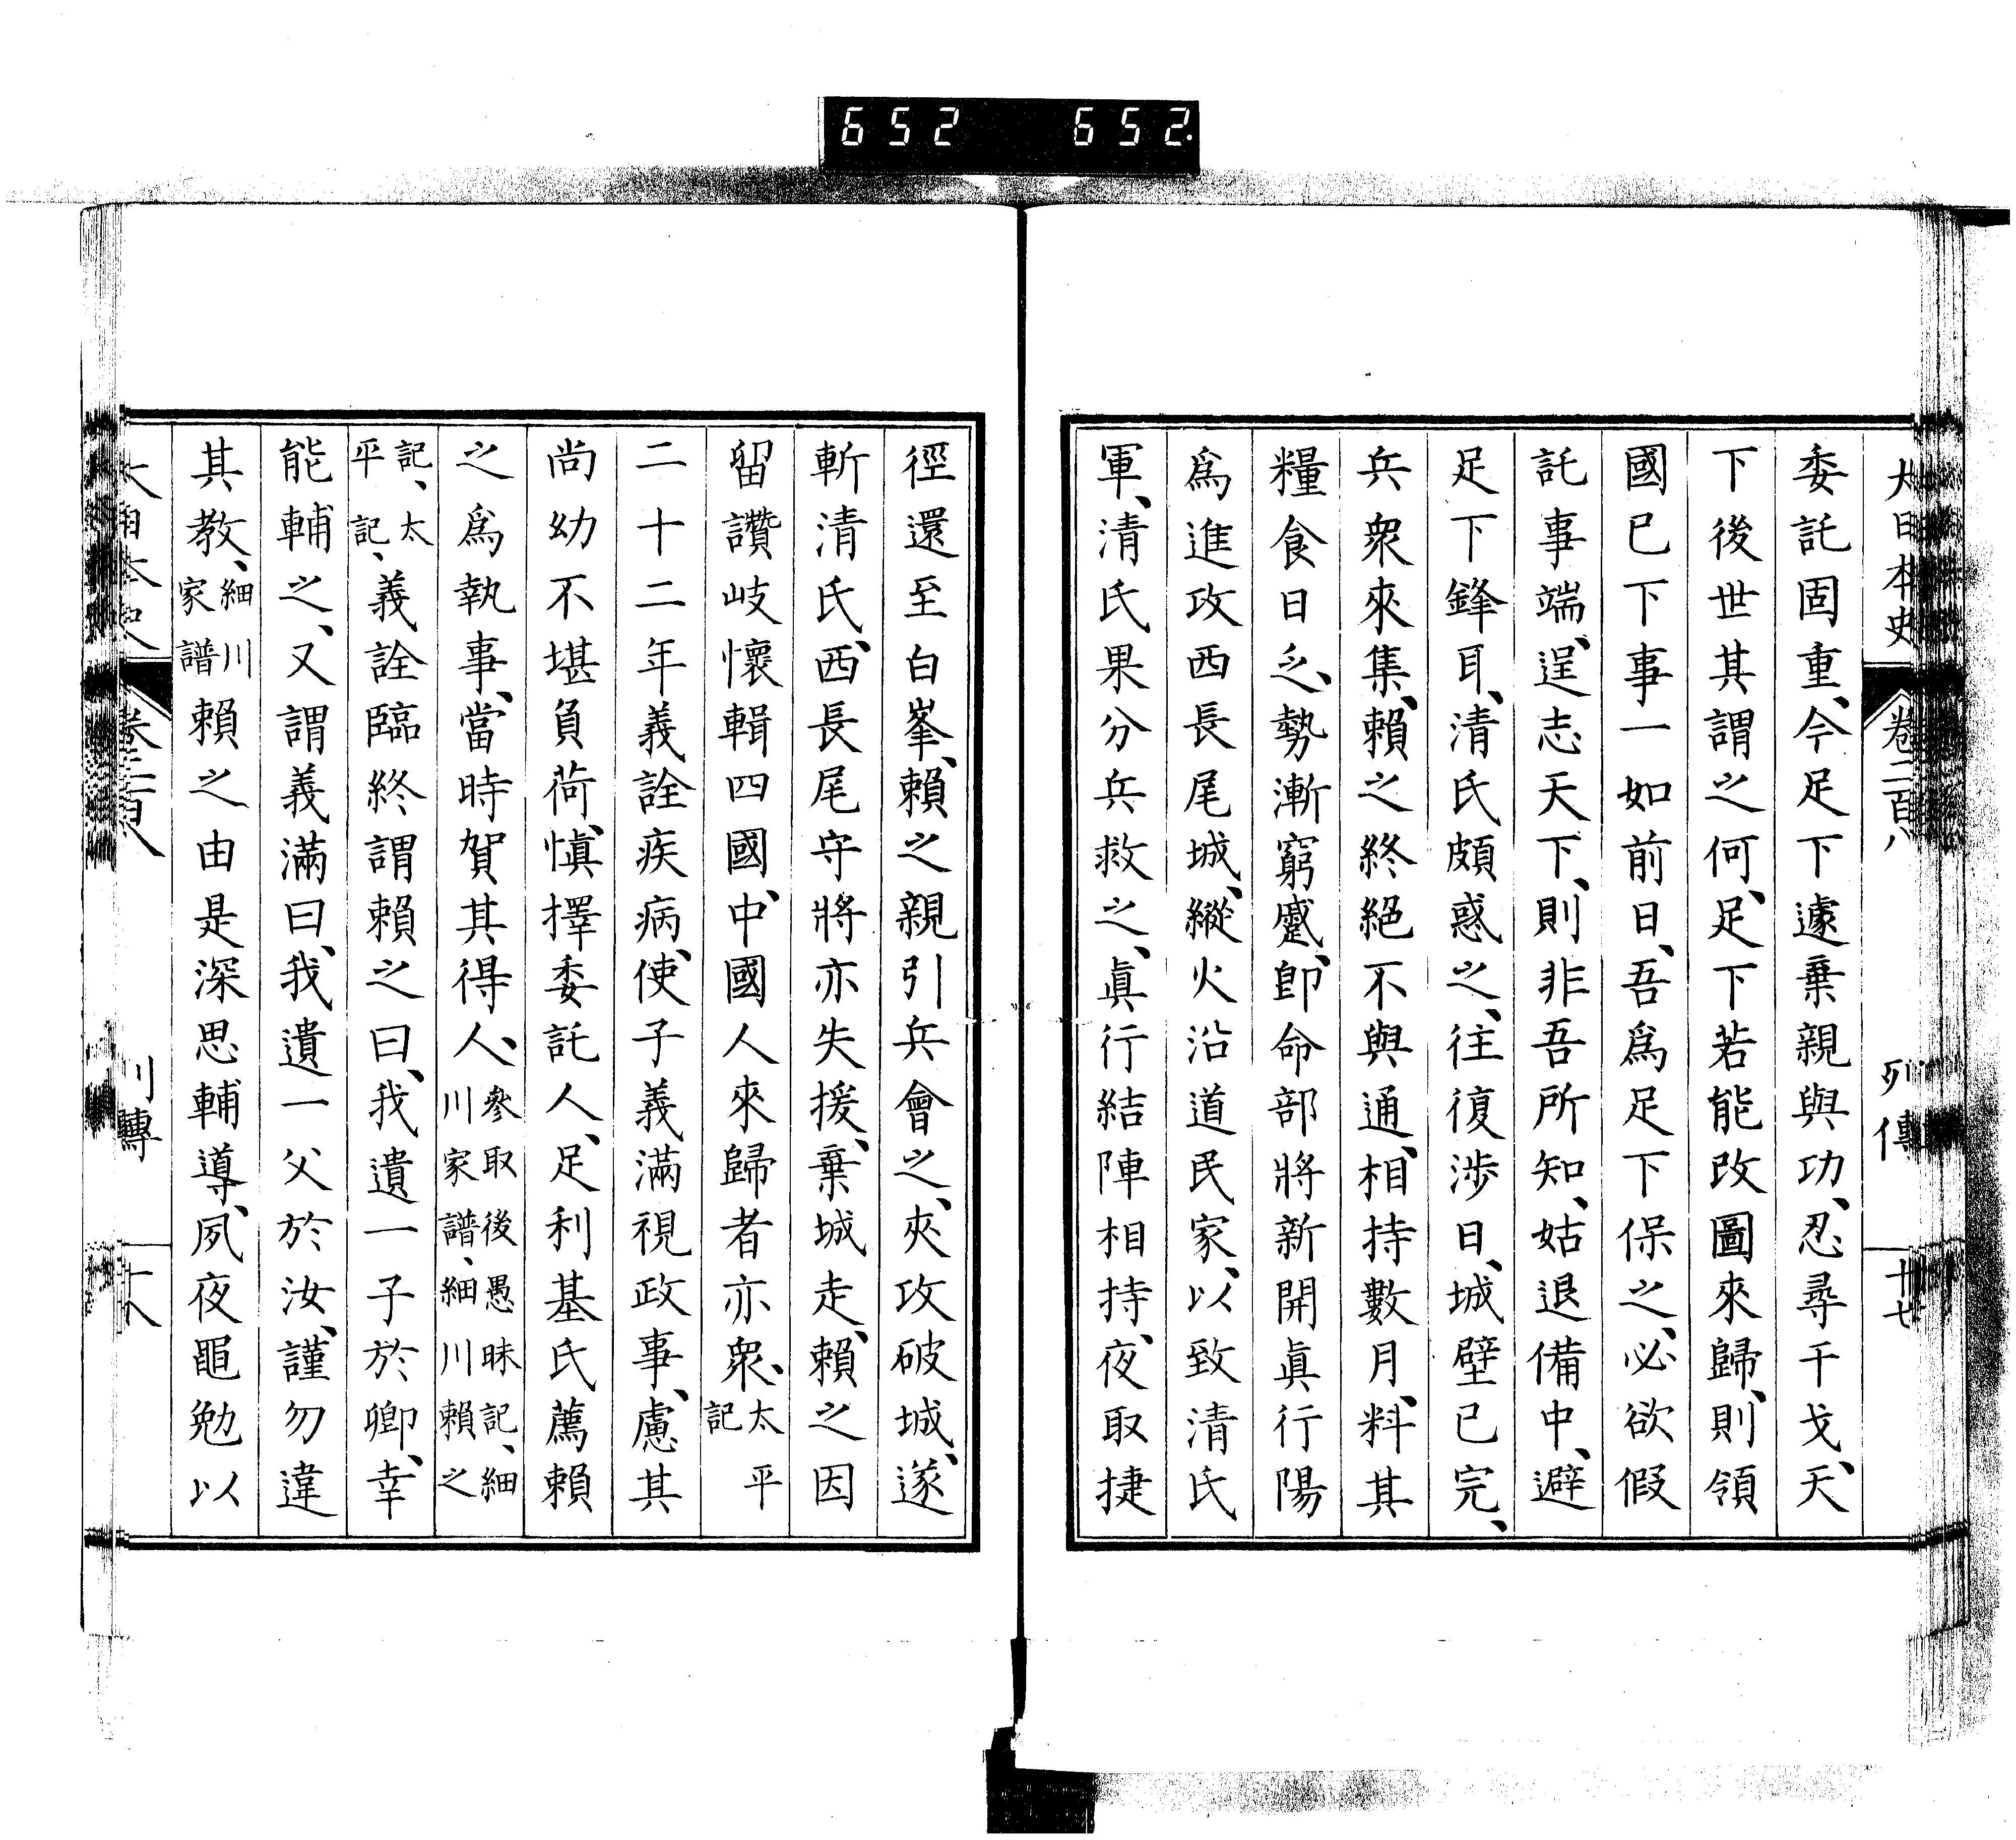 652 652
大日本史 卷二百八 列傳 十七
委託固重、今足下遽棄親與功、忍尋干戈、天
下後世其謂之何、足下若能改圖來歸、則領
國已下事一如前日、吾爲足下保之、必欲假
託事端、逞志天下、則非吾所知、姑退備中、避
足下鋒耳、清氏頗惑之、往復涉日、城壁已完、
兵衆來集、賴之終絕不與通、相持數月、料其
糧食日乏、勢漸窮蹙、卽命部將新開眞行陽
爲進攻西長尾城、縱火沿道民家、以致清氏
軍、清氏果分兵救之、眞行結陣相持、夜取捷
徑還至白峯、賴之親引兵會之、夾攻破城、遂
斬清氏、西長尾守將亦失援、棄城走、賴之因
留讚岐懷輯四國、中國人來歸者亦衆、太平記
二十二年義詮疾病、使子義滿視政事、慮其
尚幼不堪負荷、愼擇委託人、足利基氏薦賴
之爲執事、當時賀其得人、參取後愚昧記、細川家譜、細川賴之
記、太平記、義詮臨終謂賴之曰、我遺一子於卿、幸
能輔之、又謂義滿曰、我遺一父於汝、謹勿違
其教、細川家譜賴之由是深思輔導、夙夜黽勉以
大日本史 卷二百八 列傳 十八